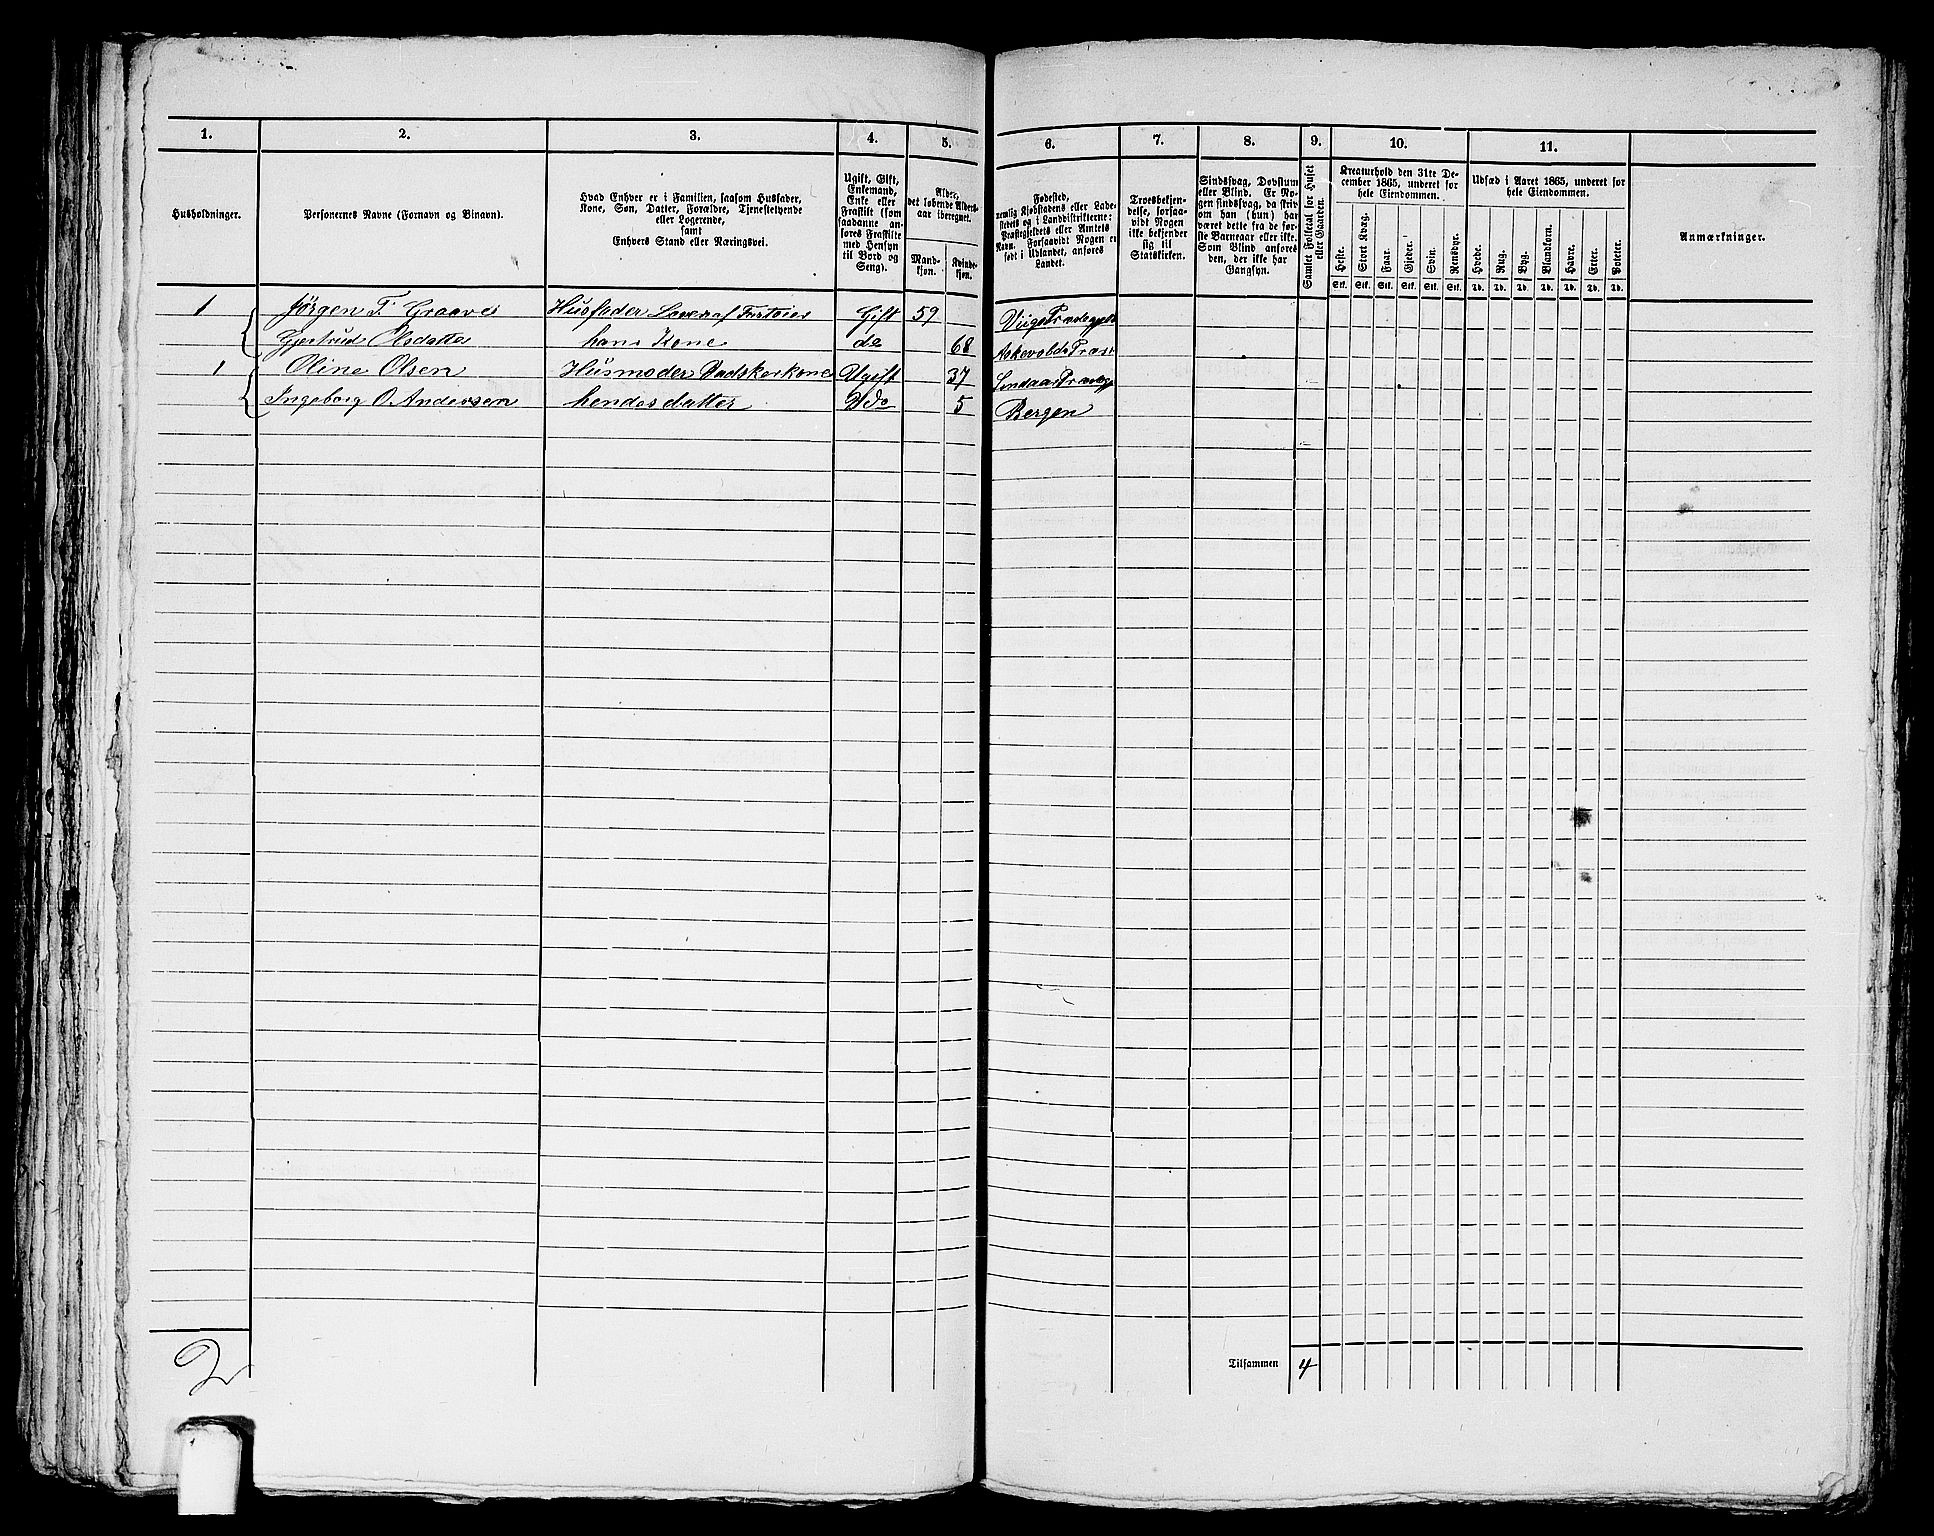 1. 2. 3. 4. 5. 6. 7. 8. 9. 10. 11.
Husholdninger.
Personernes Navne (Fornavn og Binavn).
Hvad Enhver er i Familien, saasom Husfader,
Kone, Søn, Datter, Forældre, Tjenestetyende
eller Logerende,
samt
Enhvers Stand eller Næringsvei.
Ugift, Gift,
Enkemand,
Enke eller
Fraskilt (som
saadanne an-
føres Fraskilte
med Hensyn
til Bord og
Seng).
Alder,
det løbende Alders-
aar iberegnet.
Mand-
kjøn.
Kvinde-
kjøn.
Fødested,
nemlig Kjøbstadens eller Lade-
stedets og i Landdistrikterne:
Præstegjeldets eller Amtets
Navn. Forsaavidt Nogen er
født i Udlandet, anføres
Landet.
Troesbekjen-
delse, forsaa-
vidt Nogen
ikke bekjender
sig til
Statskirken.
Sindssvag, Døvstum
eller Blind. Er No-
gen sindssvag, da skriv
om han (hun) har
været dette fra de før-
ste Barneaar eller ikke.
Som Blind anføres
den, der ikke har
Gangsyn.
Samlet Folketal for Huset
eller Gaarden.
Kreaturhold den 31te De-
cember 1865, underet for
hele Eiendommen.
Heste. Stort Kvæg. Faar. Gjeder. Svin. Rensdyr.
Stk. Stk. Stk. Stk. Stk. Stk.
Udsæd i Aaret 1865, underet for
hele Eiendommen.
Hvede. Rug. Byg. Blandkorn. Havre. Erter. Poteter.
Td. Td. Td. Td. Td. Td. Td.
Anmærkninger.
1 Jørgen T. Graave Husfader Gift 59
Gjertrud Olsdatter hans Kone do 68
1 Oline Olsen Husmoder Vadskerkone Ugift 37
Ingeborg O. Andersen hendes datter do 5 Bergen
Tilsammen 4
2